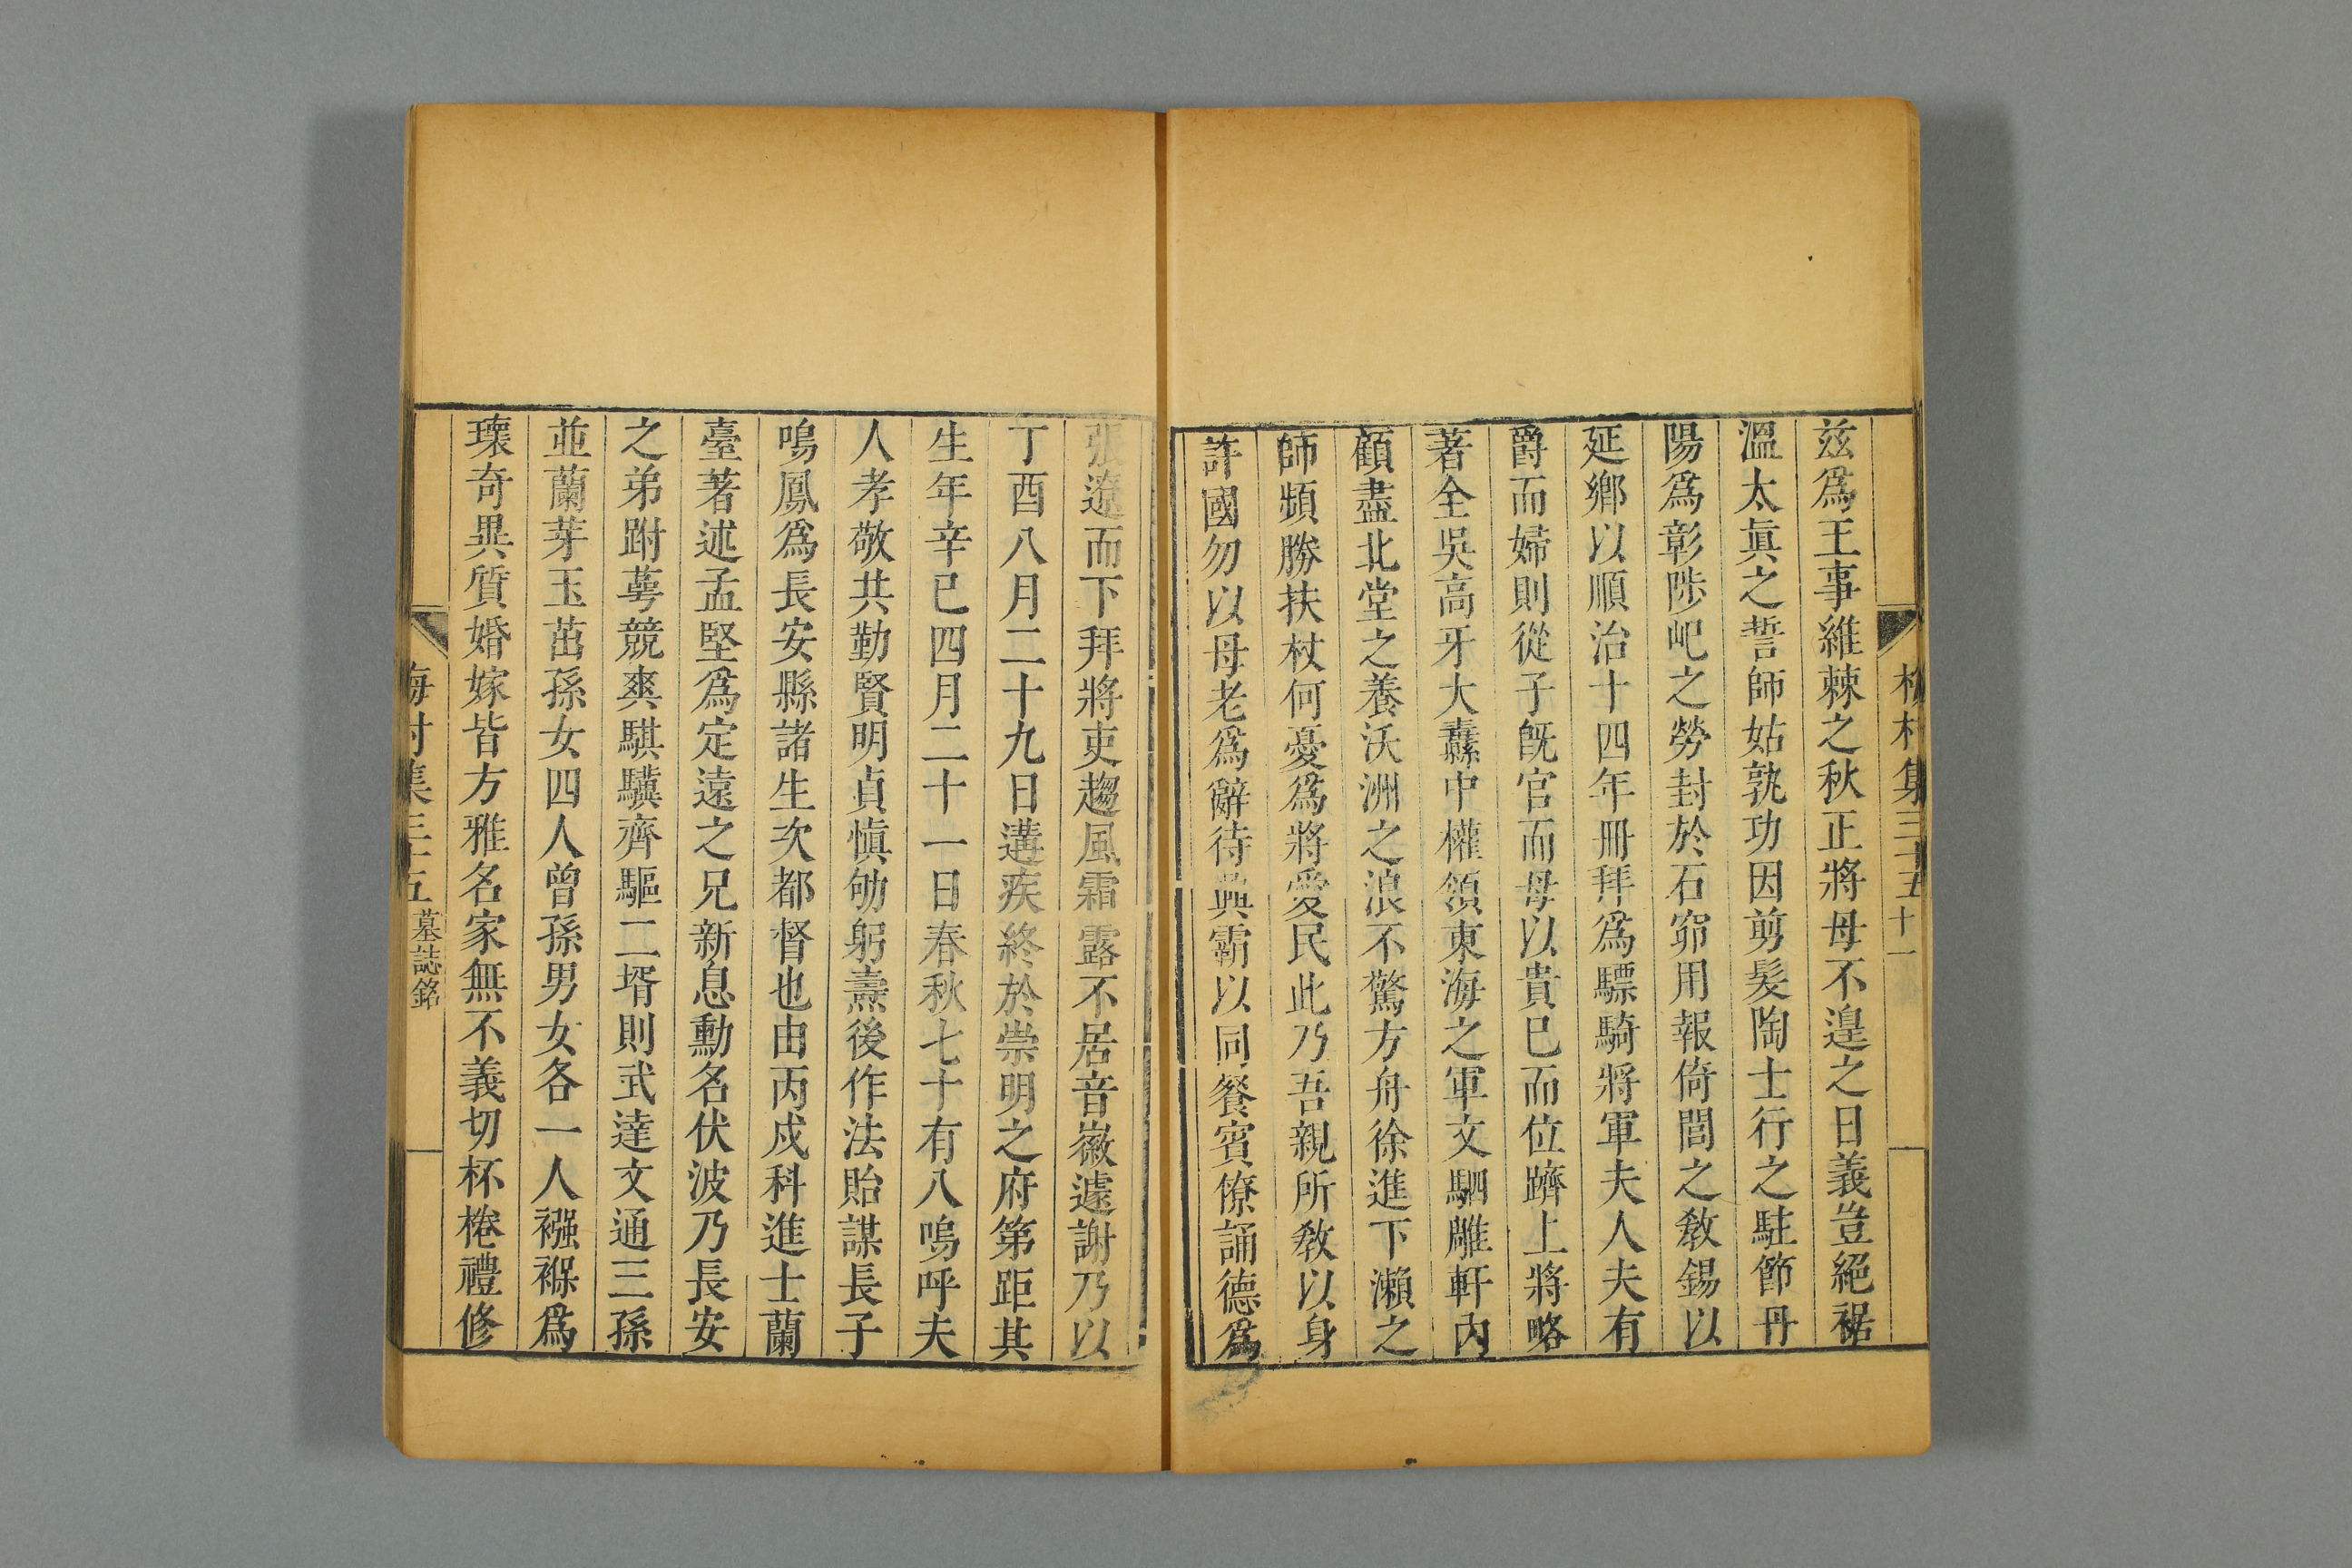 村集三十五 十一
兹爲王事維棘之秋正將母不遑之日義豈絕裾
溫太眞之誓師姑孰功因剪髮陶士行之駐節丹
陽爲彰陟屺之勞封於石窌用報倚閭之敎錫以
延鄉以順治十四年冊拜爲驃騎將軍夫人夫有
爵而婦則從子旣官而母以貴巳而位躋上將略
著全吳高牙大纛中權領東海之軍文駟雕軒內
顧盡北堂之養沃洲之浪不驚方舟徐進下瀨之
師頻勝扶杖何憂爲將愛民此乃吾親所敎以身
許國勿以母老爲辭待興霸以同餐賓僚誦德爲
張遼而下拜將吏趨風霜露不居音徽遽謝乃以
丁酉八月二十九日遘疾終於崇明之府第距其
生年辛巳四月二十一日春秋七十有八嗚呼夫
人孝敬共勤賢明貞愼劬躬燾後作法貽謀長子
鳴鳳爲長安縣諸生次都督也由丙戍科進士蘭
臺著述孟堅爲定遠之兄新息勳名伏波乃長安
之弟跗萼競爽騏驥齊驅二壻則式達文通三孫
並蘭芽玉茁孫女四人曾孫男女各一人襁褓爲
瓌奇異質婚嫁皆方雅名家無不義切杯棬禮修
梅村集三十五 墓誌銘